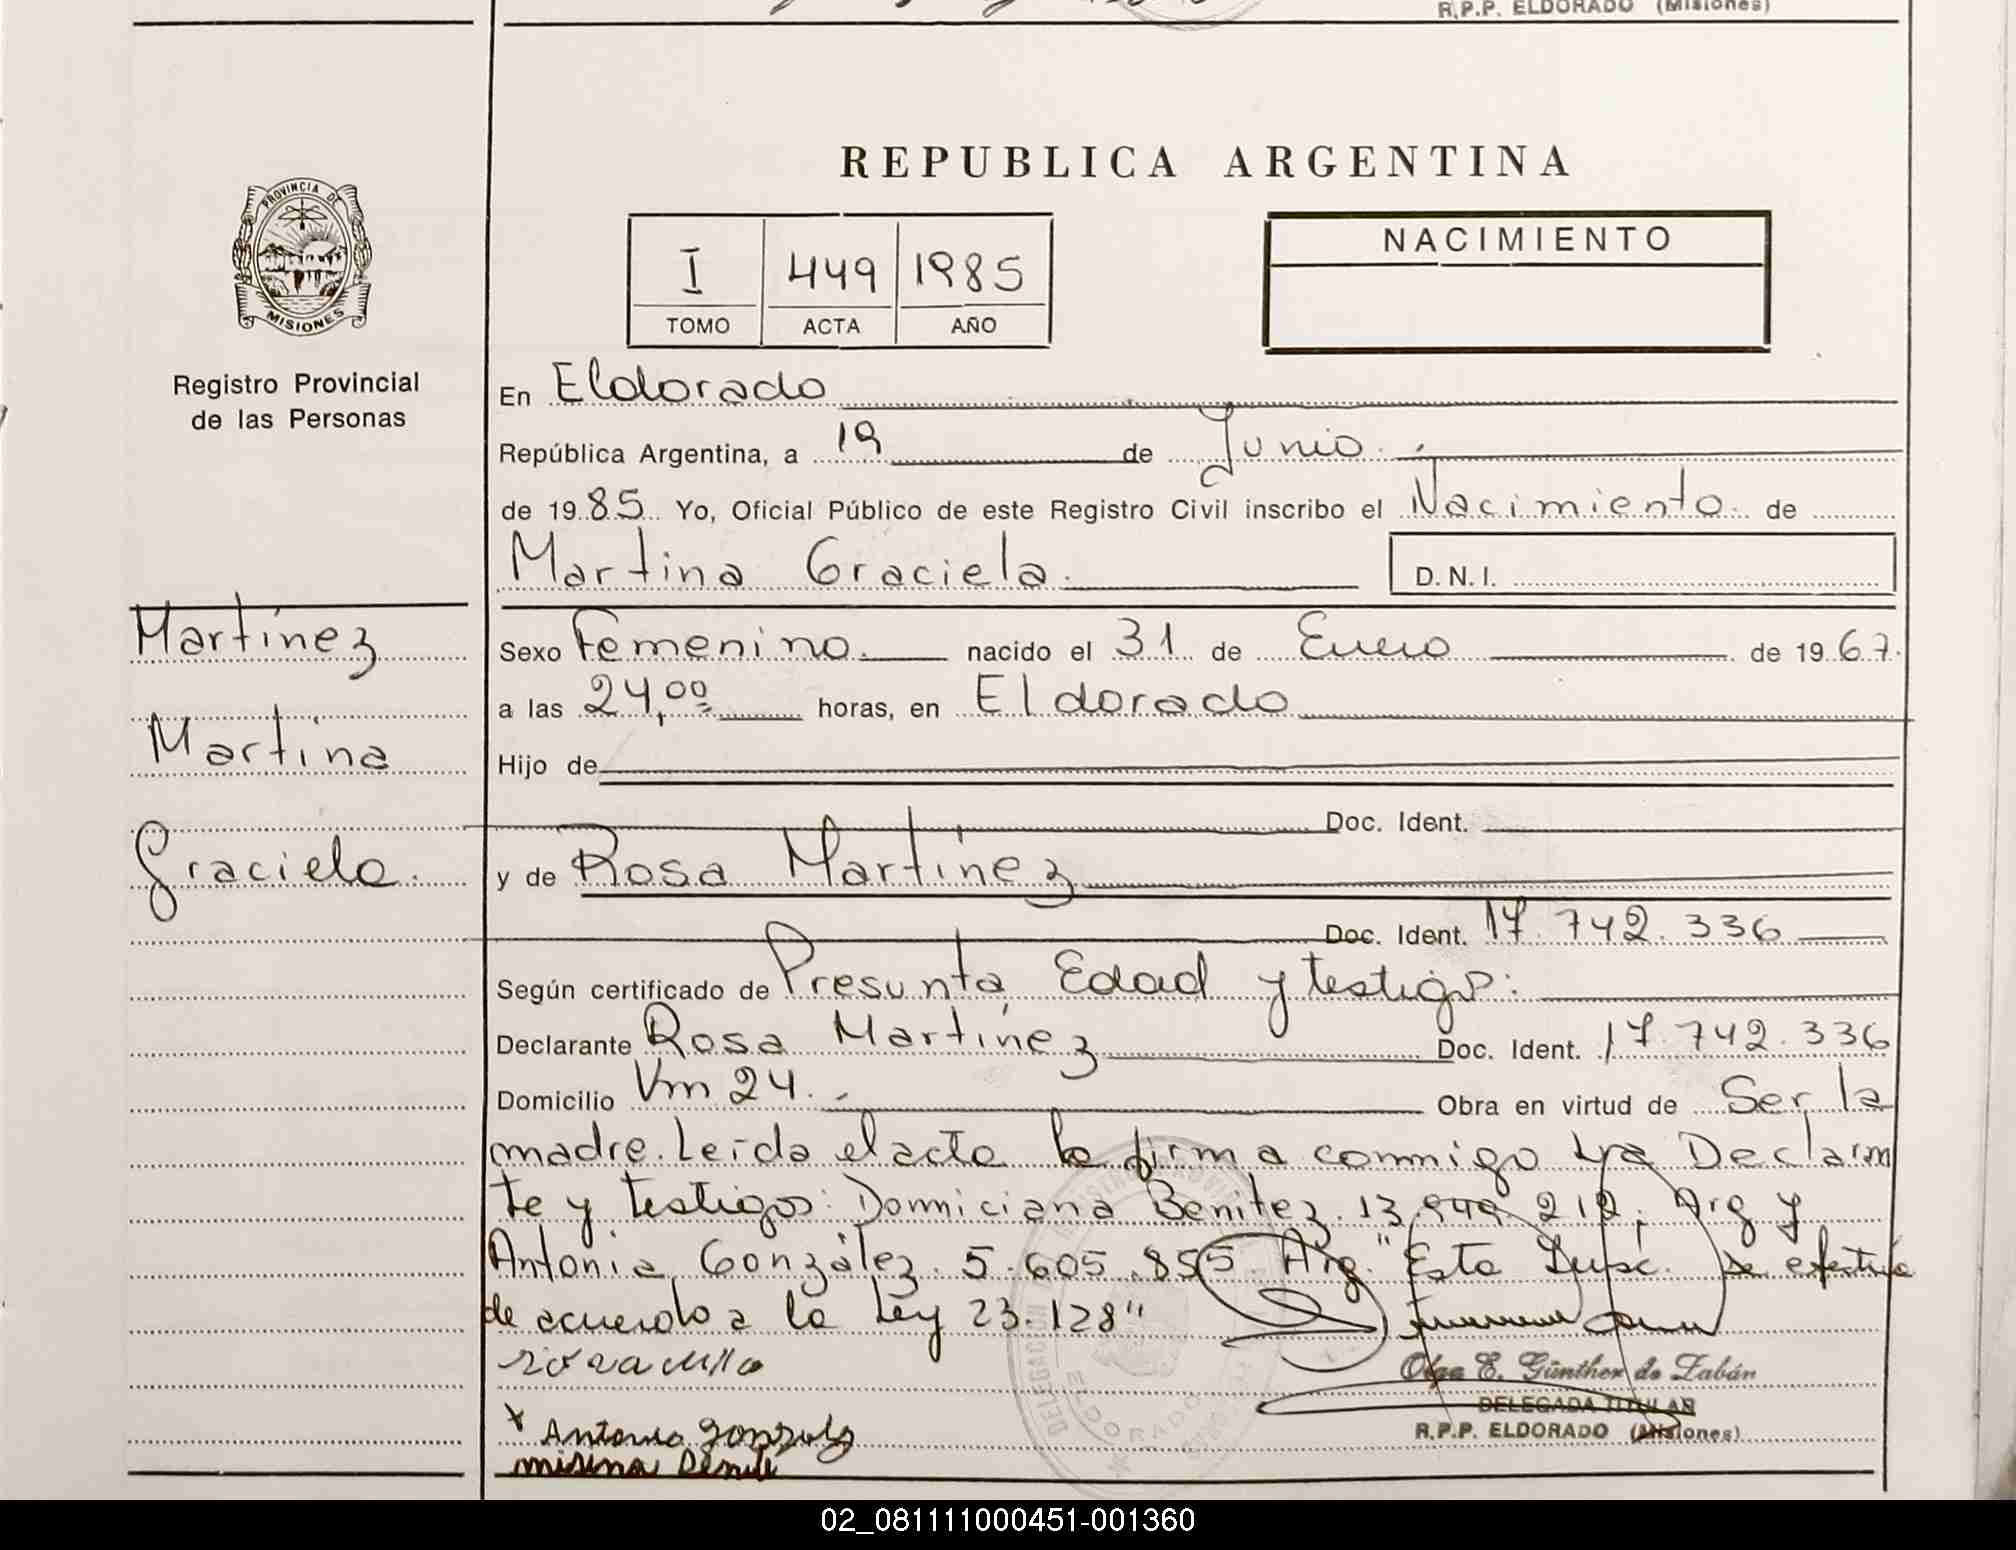 R.P.P. ELDORADO (Misiones)
REPUBLICA ARGENTINA
PROVINCIA DE
MISIONES
Registro Provincial
de las Personas
I 449 1985
TOMO ACTA AÑO
NACIMIENTO
En Eldorado
República Argentina, a 19 de Junio.
de 1985. Yo, Oficial Público de este Registro Civil inscribo el Nacimiento de
Martina Graciela.
D.N.I.
Martínez
Martina
Graciela.
Sexo Femenino. nacido el 31 de Enero de 1967.
a las 24,00 horas, en Eldorado
Hijo de
Doc. Ident.
y de Rosa Martínez
Doc. Ident. 17.742.336
Según certificado de Presunta Edad y testigos:
Declarante Rosa Martínez Doc. Ident. 17.742.336
Domicilio Vm 24. Obra en virtud de Ser la
madre. Leída el acta la firma conmigo la Declaran
te y testigos: Domiciana Benitez. 13. 212, Arg y
Antonia González. 5.605.855 Arg. "Esta Insc. se efectúa
de acuerdo a la Ley 23.128"
Olga E. Günther de Zabán
DELEGADA TITULAR
R.P.P. ELDORADO (Misiones)
x Antonia Gonzalez
02_081111000451-001360